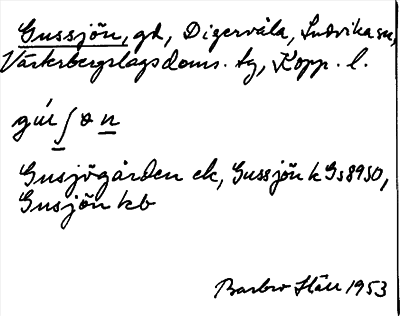 Gussjön, gd, Digervåla, Ludvika sn,
Västerbergslags doms. tg, Kopp. l.
Gusjögården ek, Gussjön k Gs8950,
Gusjön kb
Barbro Ståu 1953